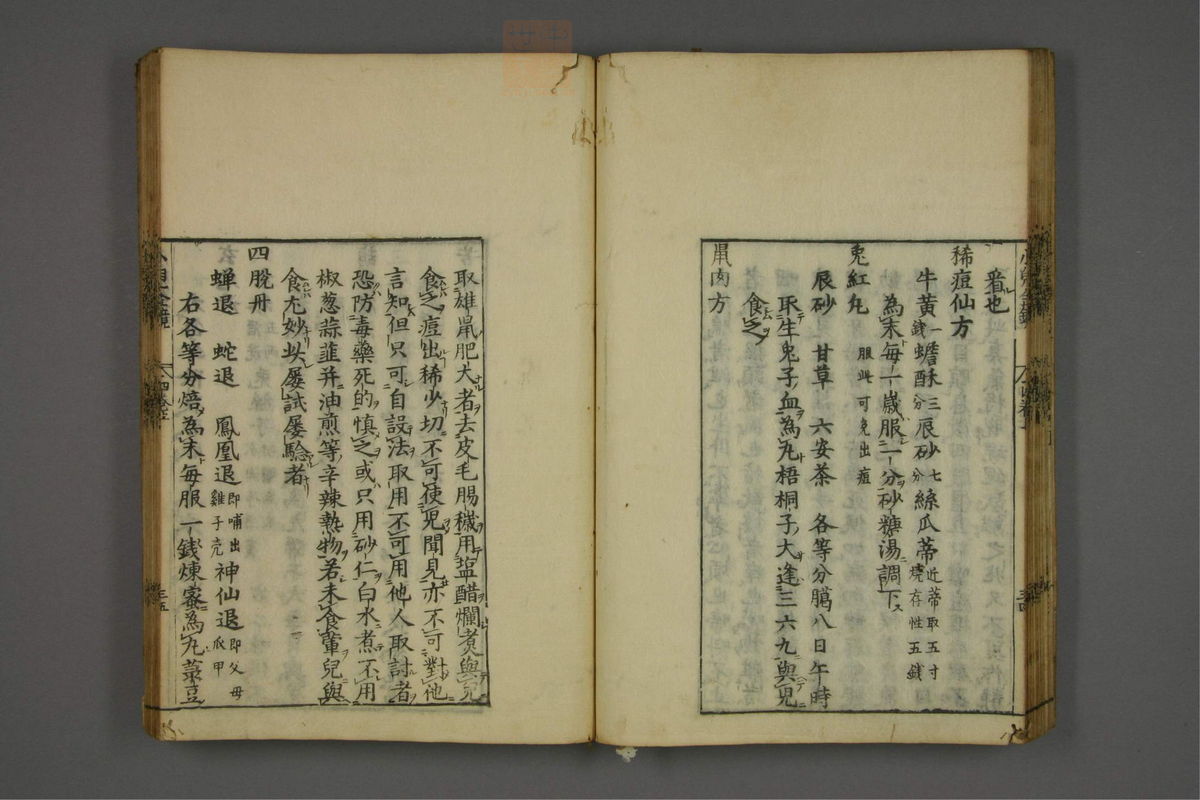 看也
稀痘仙方
牛黄一錢蟾酥三分辰砂七分絲瓜蒂近蒂取五寸燒存性五錢
為末毎一歳服一分砂糖湯調下ス
兎紅丸 服此可免出痘
辰砂 甘草 六安茶 各等分臈八日午時
取生兎子血為丸梧桐子大逢三六九與児
食之
鼠肉方
取雄鼠肥大者去皮毛腸穢用塩醋爛煮與児
食之痘出稀少切不可使児聞見亦不可對他
言知但只可自設法取用不可用他人取討者
恐防毒藥死的慎之或只用砂仁白水煮不用
椒葱蒜韮并油煎等辛辣熱物若未食葷兒與
食尤妙此屡試屡驗者
四脱丹
蟬退 蛇退 鳳凰退即哺出雞子壳神仙退即父母爪甲
右各等分焙為末毎服一錢煉蜜為丸菉豆
三五